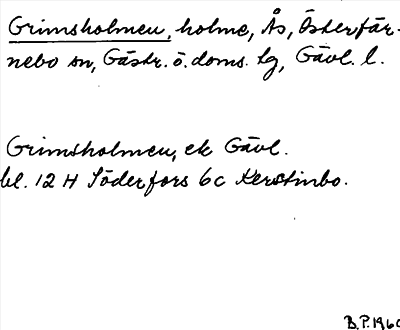 Grimsholmen, holme, Ås, Österfär-
nebo sn, Gästr. ö. doms. lg, Gävl. l.
Grimsholmen, ek Gävl.
bl. 12 H Söderfors 6c Kerstinbo.
B.P. 1960